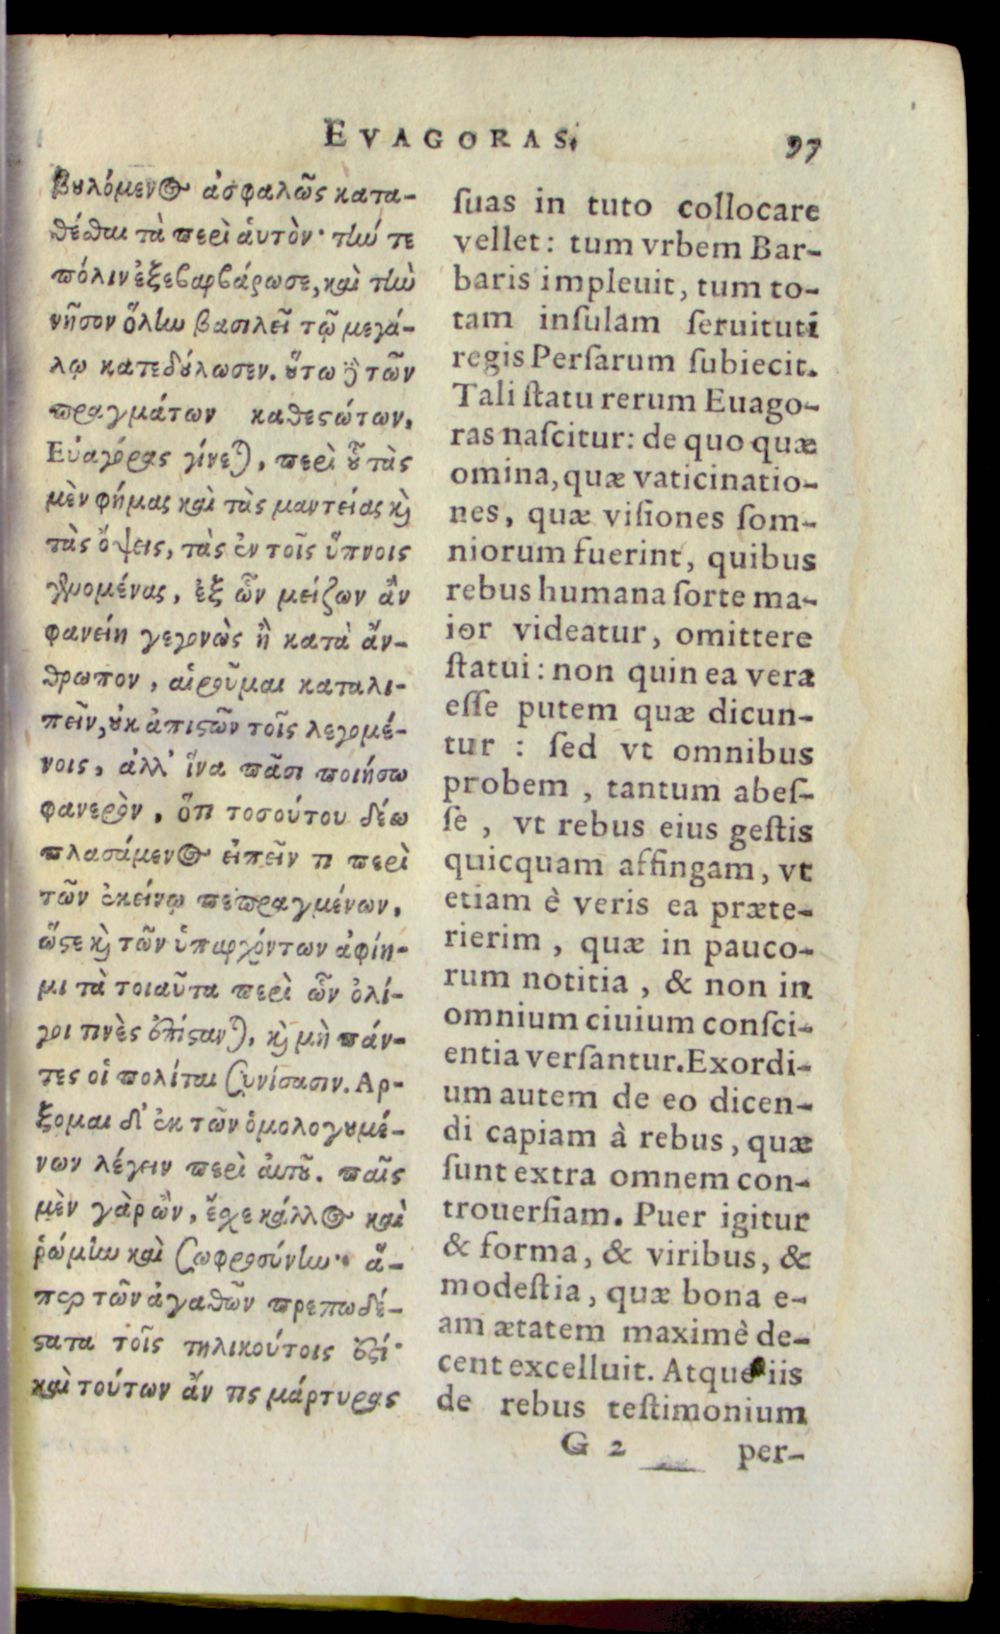 EVAGORAS.
97
βουλόμενος ἀσφαλῶς κατα-
θέσθαι τὰ περὶ αὑτὸν· τήν τε
πόλιν ἐξεβαρβάρωσε, καὶ τὴν
νῆσον ὅλην βασιλεῖ τῷ μεγά-
λῳ κατεδούλωσεν. οὕτω δὲ τῶν
πραγμάτων καθεστώτων,
Εὐαγόρας γίνεται, περὶ οὗ τὰς
μὲν φήμας καὶ τὰς μαντείας καὶ
τὰς ὄψεις, τὰς ἐν τοῖς ὕπνοις
γενομένας, ἐξ ὧν μείζων ἂν
φανείη γεγονὼς ἢ κατὰ ἄν-
θρωπον, αἱροῦμαι καταλι-
πεῖν, οὐκ ἀπιστῶν τοῖς λεγομέ-
νοις, ἀλλ' ἵνα πᾶσι ποιήσω
φανερὸν, ὅτι τοσούτου δέω
πλασάμενος εἰπεῖν τι περὶ
τῶν ἐκείνῳ πεπραγμένων,
ὥστε καὶ τῶν ὑπαρχόντων ἀφίη-
μι τὰ τοιαῦτα περὶ ὧν ὀλί-
γοι τινὲς ἐπίστανται, καὶ μὴ πάν-
τες οἱ πολίται συνίσασιν. Ἀρ-
ξομαι δ' ἐκ τῶν ὁμολογουμέ-
νων λέγειν περὶ αὐτοῦ. παῖς
μὲν γὰρ ὢν, ἔσχε κάλλος καὶ
ῥώμην καὶ σωφροσύνην· ἅ-
περ τῶν ἀγαθῶν πρεπωδέ-
στατα τοῖς τηλικούτοις ἐστί·
καὶ τούτων ἄν τις μάρτυρας
suas in tuto collocare
vellet: tum vrbem Bar-
baris impleuit, tum to-
tam insulam seruituti
regis Persarum subiecit.
Tali statu rerum Euago-
ras nascitur: de quo quæ
omina, quæ vaticinatio-
nes, quæ visiones som-
niorum fuerint, quibus
rebus humana sorte ma-
ior videatur, omittere
statui: non quin ea vera
esse putem quæ dicun-
tur : sed vt omnibus
probem , tantum abes-
se , vt rebus eius gestis
quicquam affingam, vt
etiam è veris ea præte-
rierim , quæ in pauco-
rum notitia , & non in
omnium ciuium consci-
entia versantur. Exordi-
um autem de eo dicen-
di capiam à rebus, quæ
sunt extra omnem con-
trouersiam. Puer igitur
& forma, & viribus, &
modestia, quæ bona e-
am ætatem maximè de-
cent excelluit. Atque iis
de rebus testimonium
G 2
per-